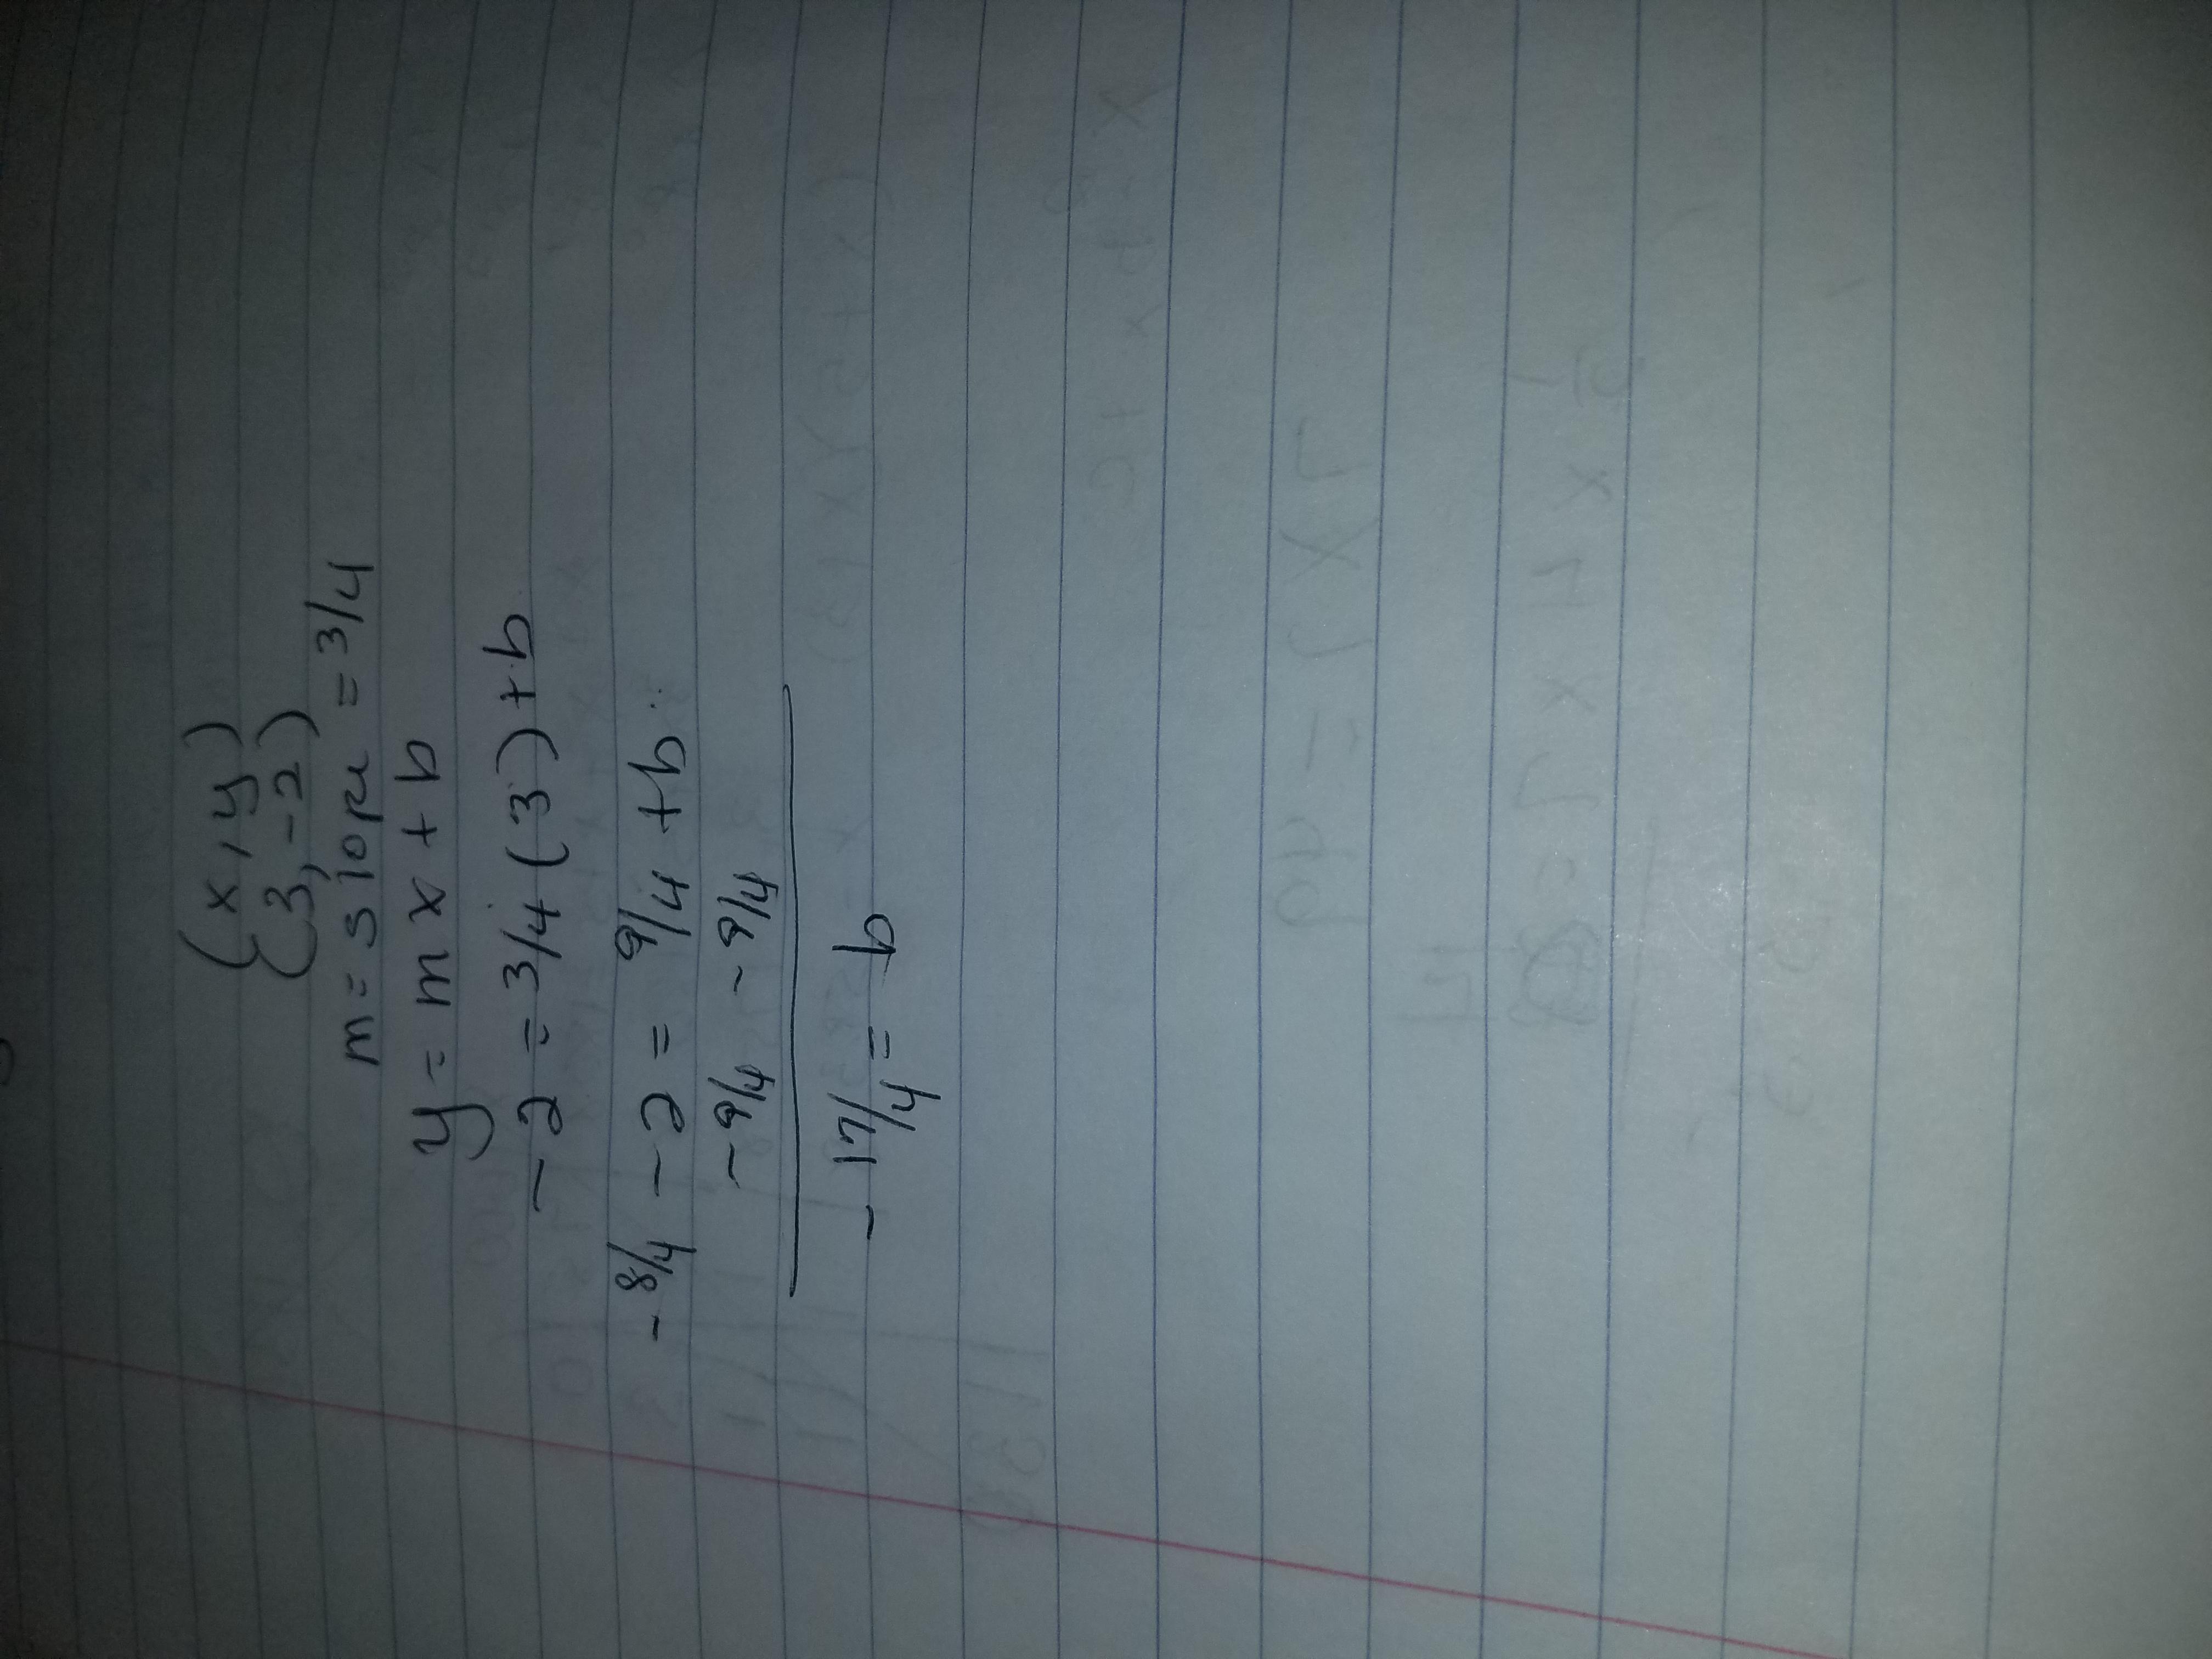 (x, y)
(3, -2)
m = slope = 3/4
y = mx + b
-2 = 3/4 (3) + b
-8/4 -2 = 9/4 + b
-9/4 - 9/4
-17/4 = b